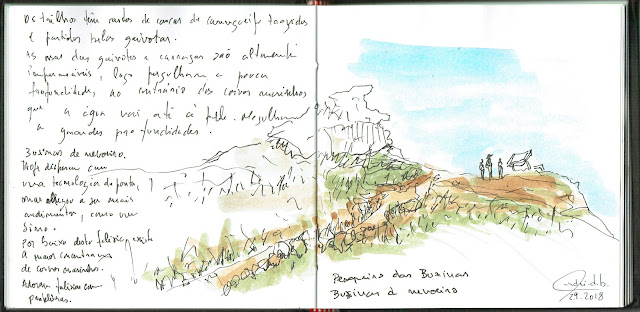 Os trilhos têm restos de cascas de caranguejo trazidos
e partidos pelas gaivotas.
As asas das gaivotas e carraças são altamente
impermeáveis, logo mergulham a pouca
profundidade, ao contrário dos corvos marinhos
que a água vai até à pele. Mergulham
a grandes profundidades.
Buzinas de nevoeiro.
Hoje dispensam com
uma tecnologia de ponta,
mas a ser mais
rudimentar, como um
Sino.
Por baixo desta falésia existe
a maior concentração
de corvos marinhos.
Adoram falésias com
prateleiras.
Pesqueiro das Buzinas
Buzinas de nevoeiro
29.2018